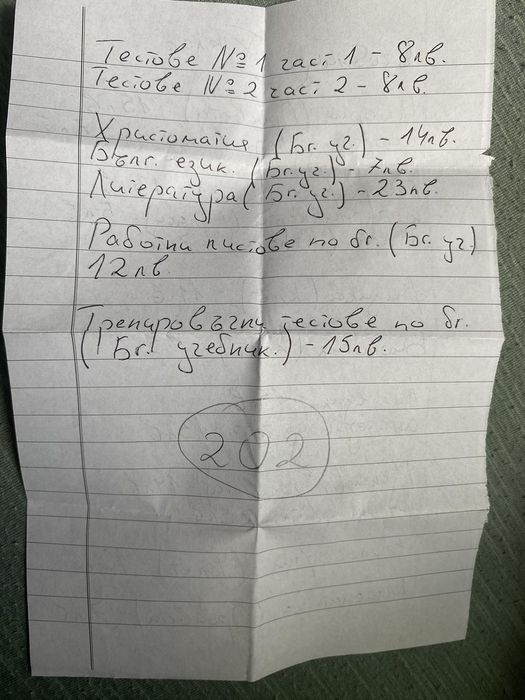 Тестове № 1 част 1 - 8лв.
Тестове № 2 част 2 - 8лв.
Христоматия (Бг. уч.) - 14лв.
Бълг. език. (Бг. уч.) - 7лв.
Литература (Бг. уч.) - 23лв.
Работни листове по бг. (Бг. уч.)
12лв.
Тренировъчни тестове по бг.
(Бг. учебник.) - 15лв.
202